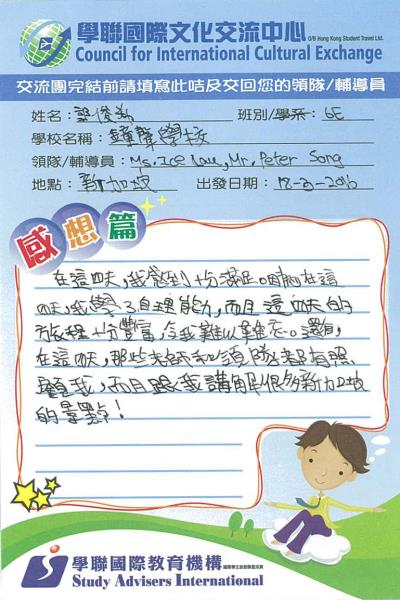 學聯國際文化交流中心 O/B Hong Kong Student Travel Ltd.
Council for International Cultural Exchange
交流團完結前請填寫此咭及交回您的領隊/輔導員
姓名：梁俊 班別/學系：6E
學校名稱：鐘聲學校
領隊/輔導員：Ms. Ice Lau, Mr. Peter Song
地點：新加坡 出發日期：18-3-2016
感想篇
在這四天，我感到十分滿足。因為在這
四天，我學了自理能力，而且這四天的
旅程十分豐富，令我難以難忘。還有，
在這四天，那些老師和領隊都有照
顧我，而且跟我講解很多新加坡
的景點！
學聯國際教育機構
Study Advisers International